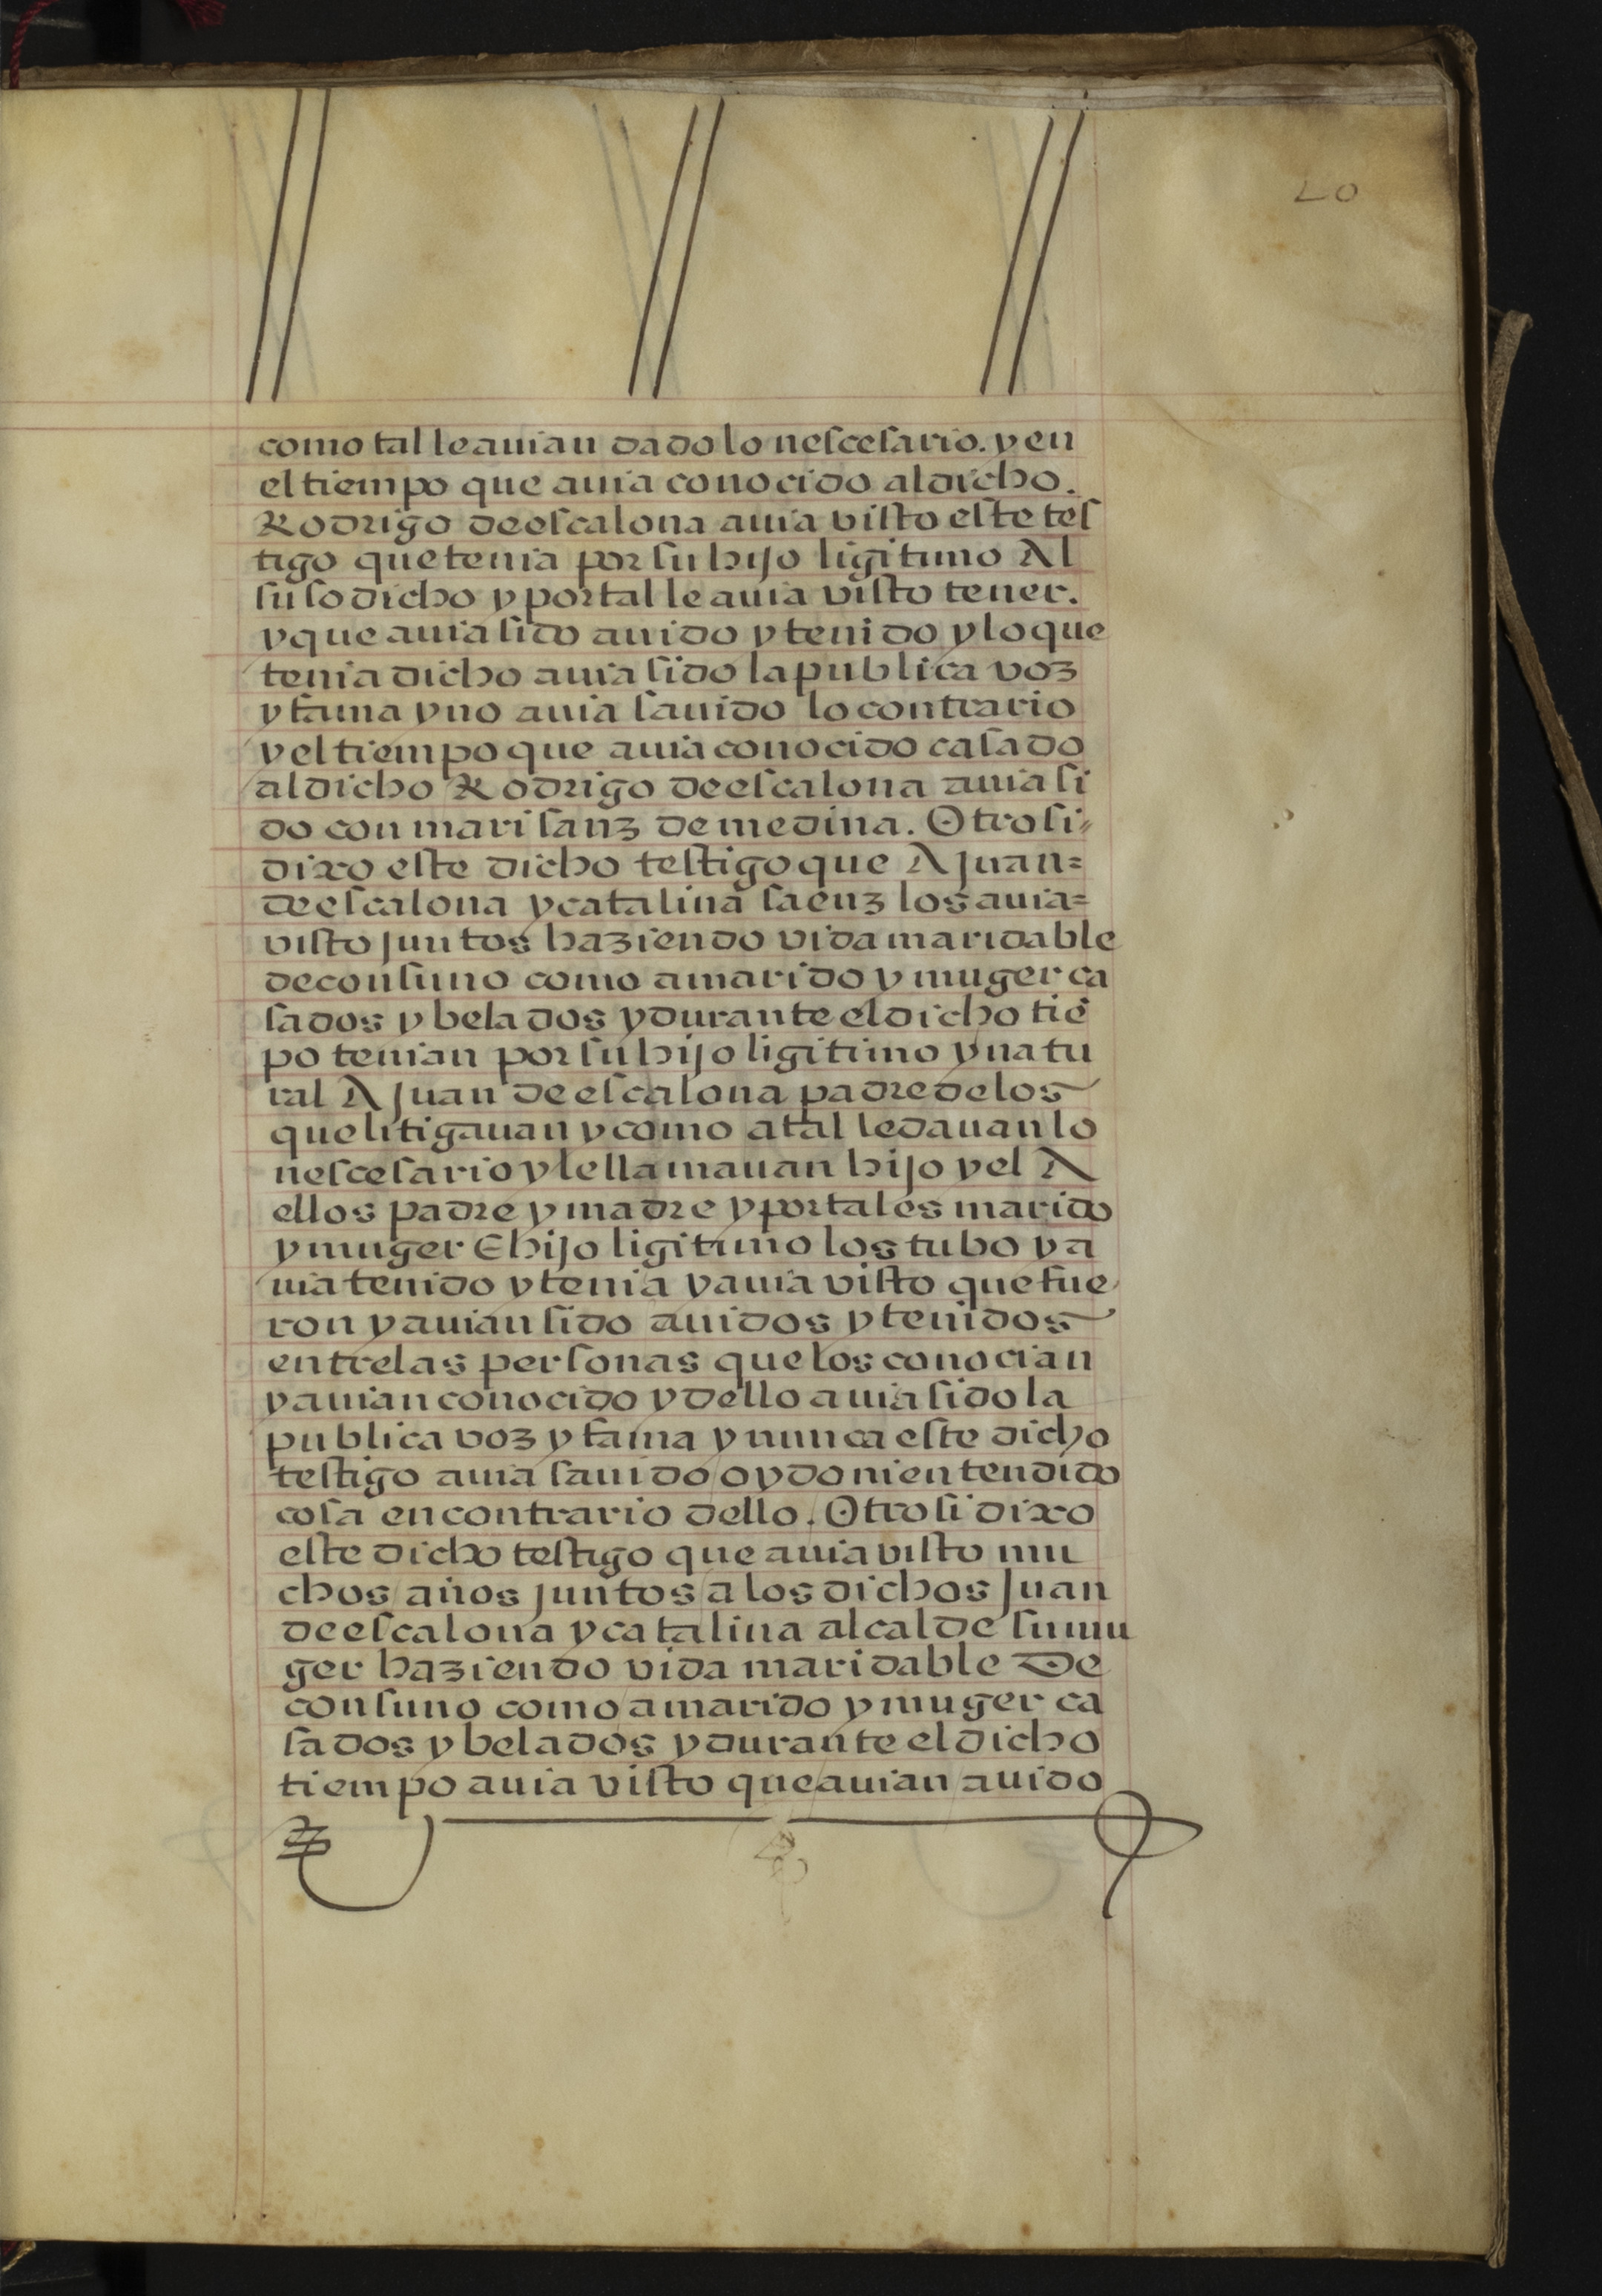 20
como tal le auian dado lo nescesario. y en
el tiempo que auia conocido al dicho.
Rodrigo de escalona auia visto este tes
tigo que tenia por su hijo ligitimo Al
suso dicho y por tal le auia visto tener.
y que auia sido auido y tenido y lo que
tenia dicho auia sido la publica voz
y fama y no auia sauido lo contrario
y el tiempo que auia conocido casado
al dicho Rodrigo de escalona auia si
do con mari sanz de medina. Otro si=
dixo este dicho testigo que A Juan=
de escalona y catalina saenz los auia=
visto juntos haziendo vida maridable
de consuno como a marido y muger ca
sados y belados y durante el dicho tiē
po tenian por su hijo ligitimo y natu
ral A Juan de escalona padre de los
que litigauan y como a tal le dauan lo
nescesario y le llamauan hijo y el A
ellos padre y madre y por tales marido
y muger E hijo ligitimo los tubo y a
uia tenido y tenia y auia visto que fue
ron y auian sido auidos y tenidos
entre las personas que los conocian
y auian conocido y dello auia sido la
publica voz y fama y nunca este dicho
testigo auia sauido oydo ni entendido
cosa en contrario dello. Otro si dixo
este dicho testigo que auia visto mu
chos años juntos a los dichos Juan
de escalona y catalina alcalde su mu
ger haziendo vida maridable De
consuno como a marido y muger ca
sados y belados y durante el dicho
tiempo auia visto que auian auido